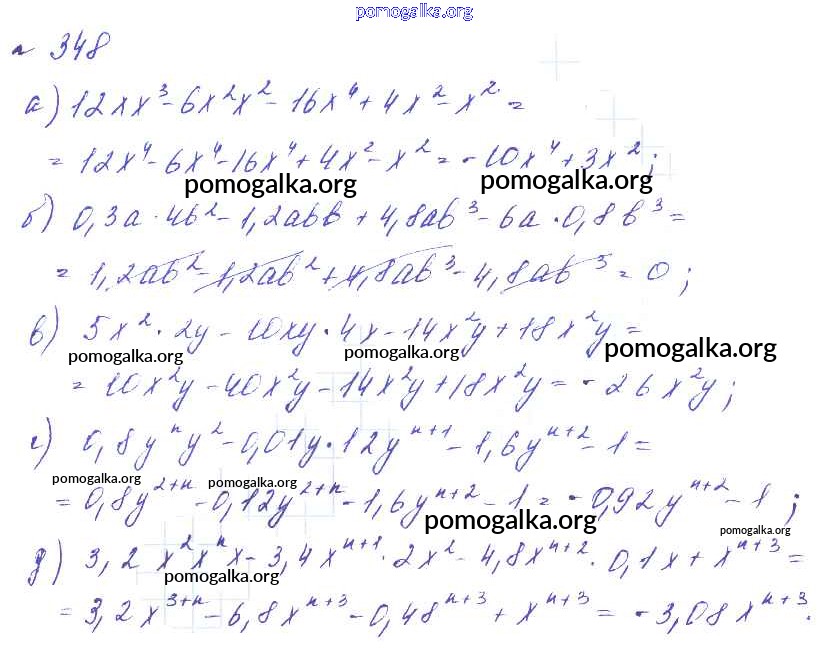 pomogalka.org
№ 348
а) 12xx³ - 6x²x² - 16x⁴ + 4x² - x² =
= 12x⁴ - 6x⁴ - 16x⁴ + 4x² - x² = -10x⁴ + 3x²;
pomogalka.org pomogalka.org
б) 0,3a · 4b² - 1,2abb + 4,8ab³ - 6a · 0,8b³ =
= 1,2ab² - 1,2ab² + 4,8ab³ - 4,8ab³ = 0;
в) 5x² · 2y - 10xy · 4x - 14x²y + 18x²y =
pomogalka.org pomogalka.org pomogalka.org
= 10x²y - 40x²y - 14x²y + 18x²y = -26x²y;
г) 0,8yⁿy² - 0,01y · 12yⁿ⁺¹ - 1,6yⁿ⁺² - 1 =
pomogalka.org pomogalka.org
= 0,8y²⁺ⁿ - 0,12y²⁺ⁿ - 1,6yⁿ⁺² - 1 = -0,92yⁿ⁺² - 1;
pomogalka.org pomogalka.org
д) 3,2x²xⁿx - 3,4xⁿ⁺¹ · 2x² - 4,8xⁿ⁺² · 0,1x + xⁿ⁺³ =
pomogalka.org
= 3,2x³⁺ⁿ - 6,8xⁿ⁺³ - 0,48ⁿ⁺³ + xⁿ⁺³ = -3,08xⁿ⁺³.